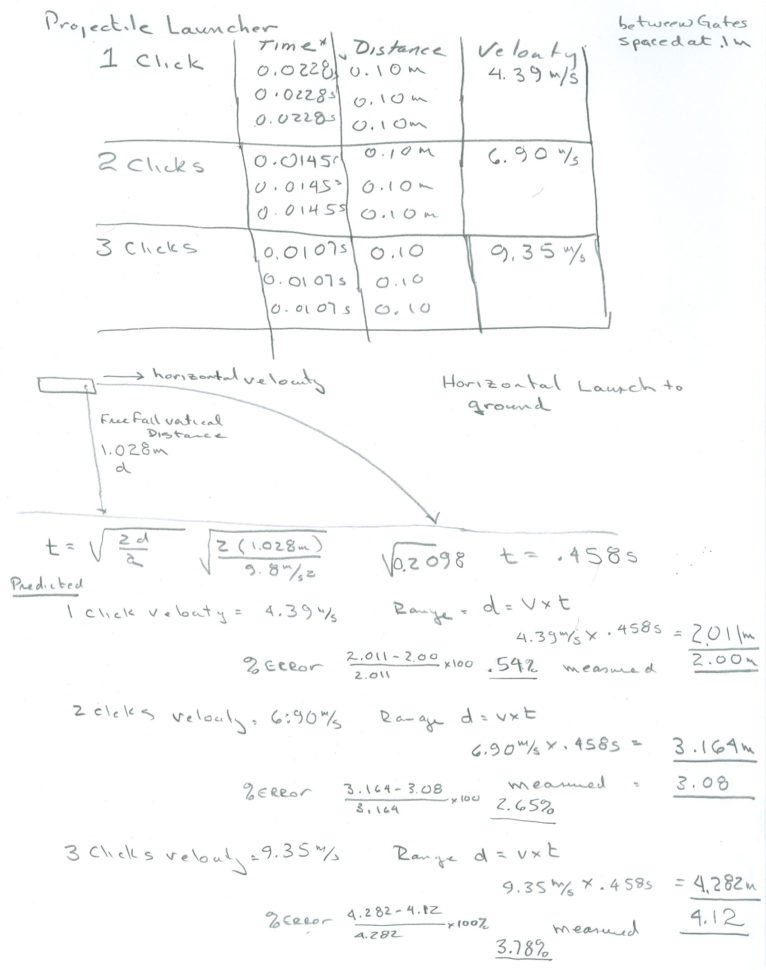 Projectile Launcher
between Gates
spaced at .1m
Time* Distance Velocity
1 Click 0.0228s 0.10m 4.39 m/s
0.0228s 0.10m
0.0228s 0.10m
2 Clicks 0.0145s 0.10m 6.90 m/s
0.0145s 0.10m
0.0145s 0.10m
3 Clicks 0.0107s 0.10 9.35 m/s
0.0107s 0.10
0.0107s 0.10
→ horizontal velocity
Horizontal Launch to
ground
Free fall vertical
Distance
1.028m
d
t = √(2d/a) √(2(1.028m)/9.8m/s2) √0.2098 t = .458s
Predicted
1 click velocity = 4.39 m/s Range = d = v×t
4.39 m/s × .458s = 2.011m
% Error (2.011-2.00)/2.011 ×100 .542 measured 2.00m
2 clicks velocity = 6.90 m/s Range d = v×t
6.90 m/s × .458s = 3.164m
% Error (3.164-3.08)/3.164 ×100 measured = 3.08
2.65%
3 Clicks velocity = 9.35 m/s Range d = v×t
9.35 m/s × .458s = 4.282m
% Error (4.282-4.12)/4.282 ×100% measured 4.12
3.78%